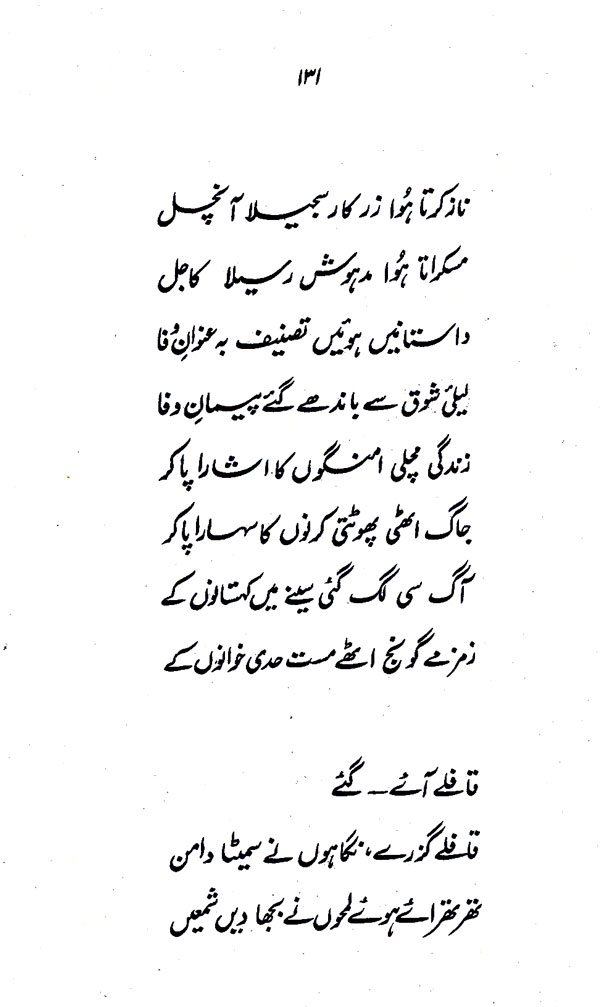 ۱۳۱
ناز کرتا ہُوا زر کار سجیلا آنچل
مسکراتا ہُوا مدہوش رسیلا کاجل
داستانیں ہوئیں تصنیف بہ عنوانِ وفا
لیلیٰ شوق سے باندھے گئے پیمانِ وفا
زندگی مچلی امنگوں کا اشارا پا کر
جاگ اٹھی پھوٹتی کرنوں کا سہارا پا کر
آگ سی لگ گئی سینے میں کہستانوں کے
زمزمے گونج اٹھے مست حدی خوانوں کے
قافلے آئے — گئے
قافلے گزرے، نگاہوں نے سمیٹا دامن
تھرتھرائے ہوئے لمحوں نے بجھا دیں شمعیں